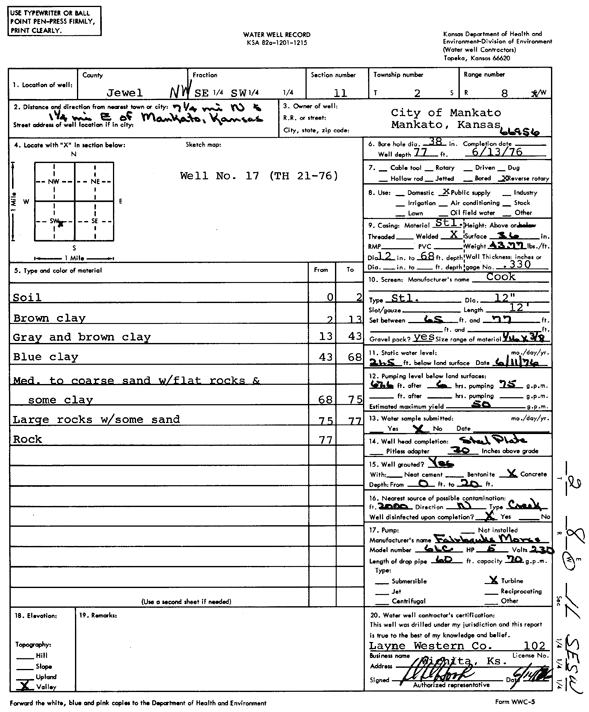 USE TYPEWRITER OR BALL
POINT PEN-PRESS FIRMLY,
PRINT CLEARLY.
WATER WELL RECORD
KSA 82a-1201-1215
Kansas Department of Health and
Environment-Division of Environment
(Water well Contractors)
Topeka, Kansas 66620
1. Location of well:
County
Jewel
Fraction
NW SE 1/4 SW 1/4 1/4
Section number
11
Township number
T 2 S
Range number
R 8 E/W
2. Distance and direction from nearest town or city: 7 1/4 mi N &
1 1/4 mi E of Mankato, Kansas
Street address of well location if in city:
3. Owner of well:
R.R. or street:
City, state, zip code:
City of Mankato
Mankato, Kansas
66956
4. Locate with "X" in section below:
N
NW NE
W E
SW SE
S
1 Mile
1 Mile
Sketch map:
Well No. 17 (TH 21-76)
6. Bore hole dia. 38 in. Completion date
Well depth 77 ft. 6/13/76
7. Cable tool Rotary Driven Dug
Hollow rod Jetted Bored X Reverse rotary
8. Use: Domestic X Public supply Industry
Irrigation Air conditioning Stock
Lawn Oil field water Other
9. Casing: Material Stl. Height: Above or below
Threaded Welded X Surface 36 in.
RMP PVC Weight 43.77 lbs./ft.
Dia. 12 in. to 68 ft. depth Wall Thickness: inches or
Dia. in. to ft. depth gage No. .330
10. Screen: Manufacturer's name Cook
Type Stl. Dia. 12"
Slot/gauze Length 12'
Set between 65 ft. and 77 ft.
ft. and ft.
Gravel pack? Yes Size range of material 1/16 x 3/8
11. Static water level: mo./day/yr.
21.5 ft. below land surface Date 6/11/76
12. Pumping level below land surfaces:
67.6 ft. after 6 hrs. pumping 75 g.p.m.
ft. after hrs. pumping g.p.m.
Estimated maximum yield 50 g.p.m.
13. Water sample submitted: mo./day/yr.
Yes X No Date
14. Well head completion: Steel Plate
Pitless adapter 30 Inches above grade
15. Well grouted? Yes
With: Neat cement Bentonite X Concrete
Depth: From 0 ft. to 20 ft.
16. Nearest source of possible contamination:
ft. 2000 Direction N Type Creek
Well disinfected upon completion? X Yes No
17. Pump: Not installed
Manufacturer's name Fairbanks Morse
Model number 6LC HP 5 Volts 230
Length of drop pipe 60 ft. capacity 70 g.p.m.
Type:
Submersible X Turbine
Jet Reciprocating
Centrifugal Other
5. Type and color of material
From To
Soil 0 2
Brown clay 2 13
Gray and brown clay 13 43
Blue clay 43 68
Med. to coarse sand w/flat rocks &
some clay 68 75
Large rocks w/some sand 75 77
Rock 77
(Use a second sheet if needed)
18. Elevation:
Topography:
Hill
Slope
Upland
X Valley
19. Remarks:
20. Water well contractor's certification:
This well was drilled under my jurisdiction and this report
is true to the best of my knowledge and belief.
Layne Western Co. 102
Business name License No.
Address Wichita, Ks.
Signed Date
Authorized representative
Forward the white, blue and pink copies to the Department of Health and Environment
Form WWC-5
T 2
R 8 E W
Sec 11
1/4 1/4 1/4 SE SW